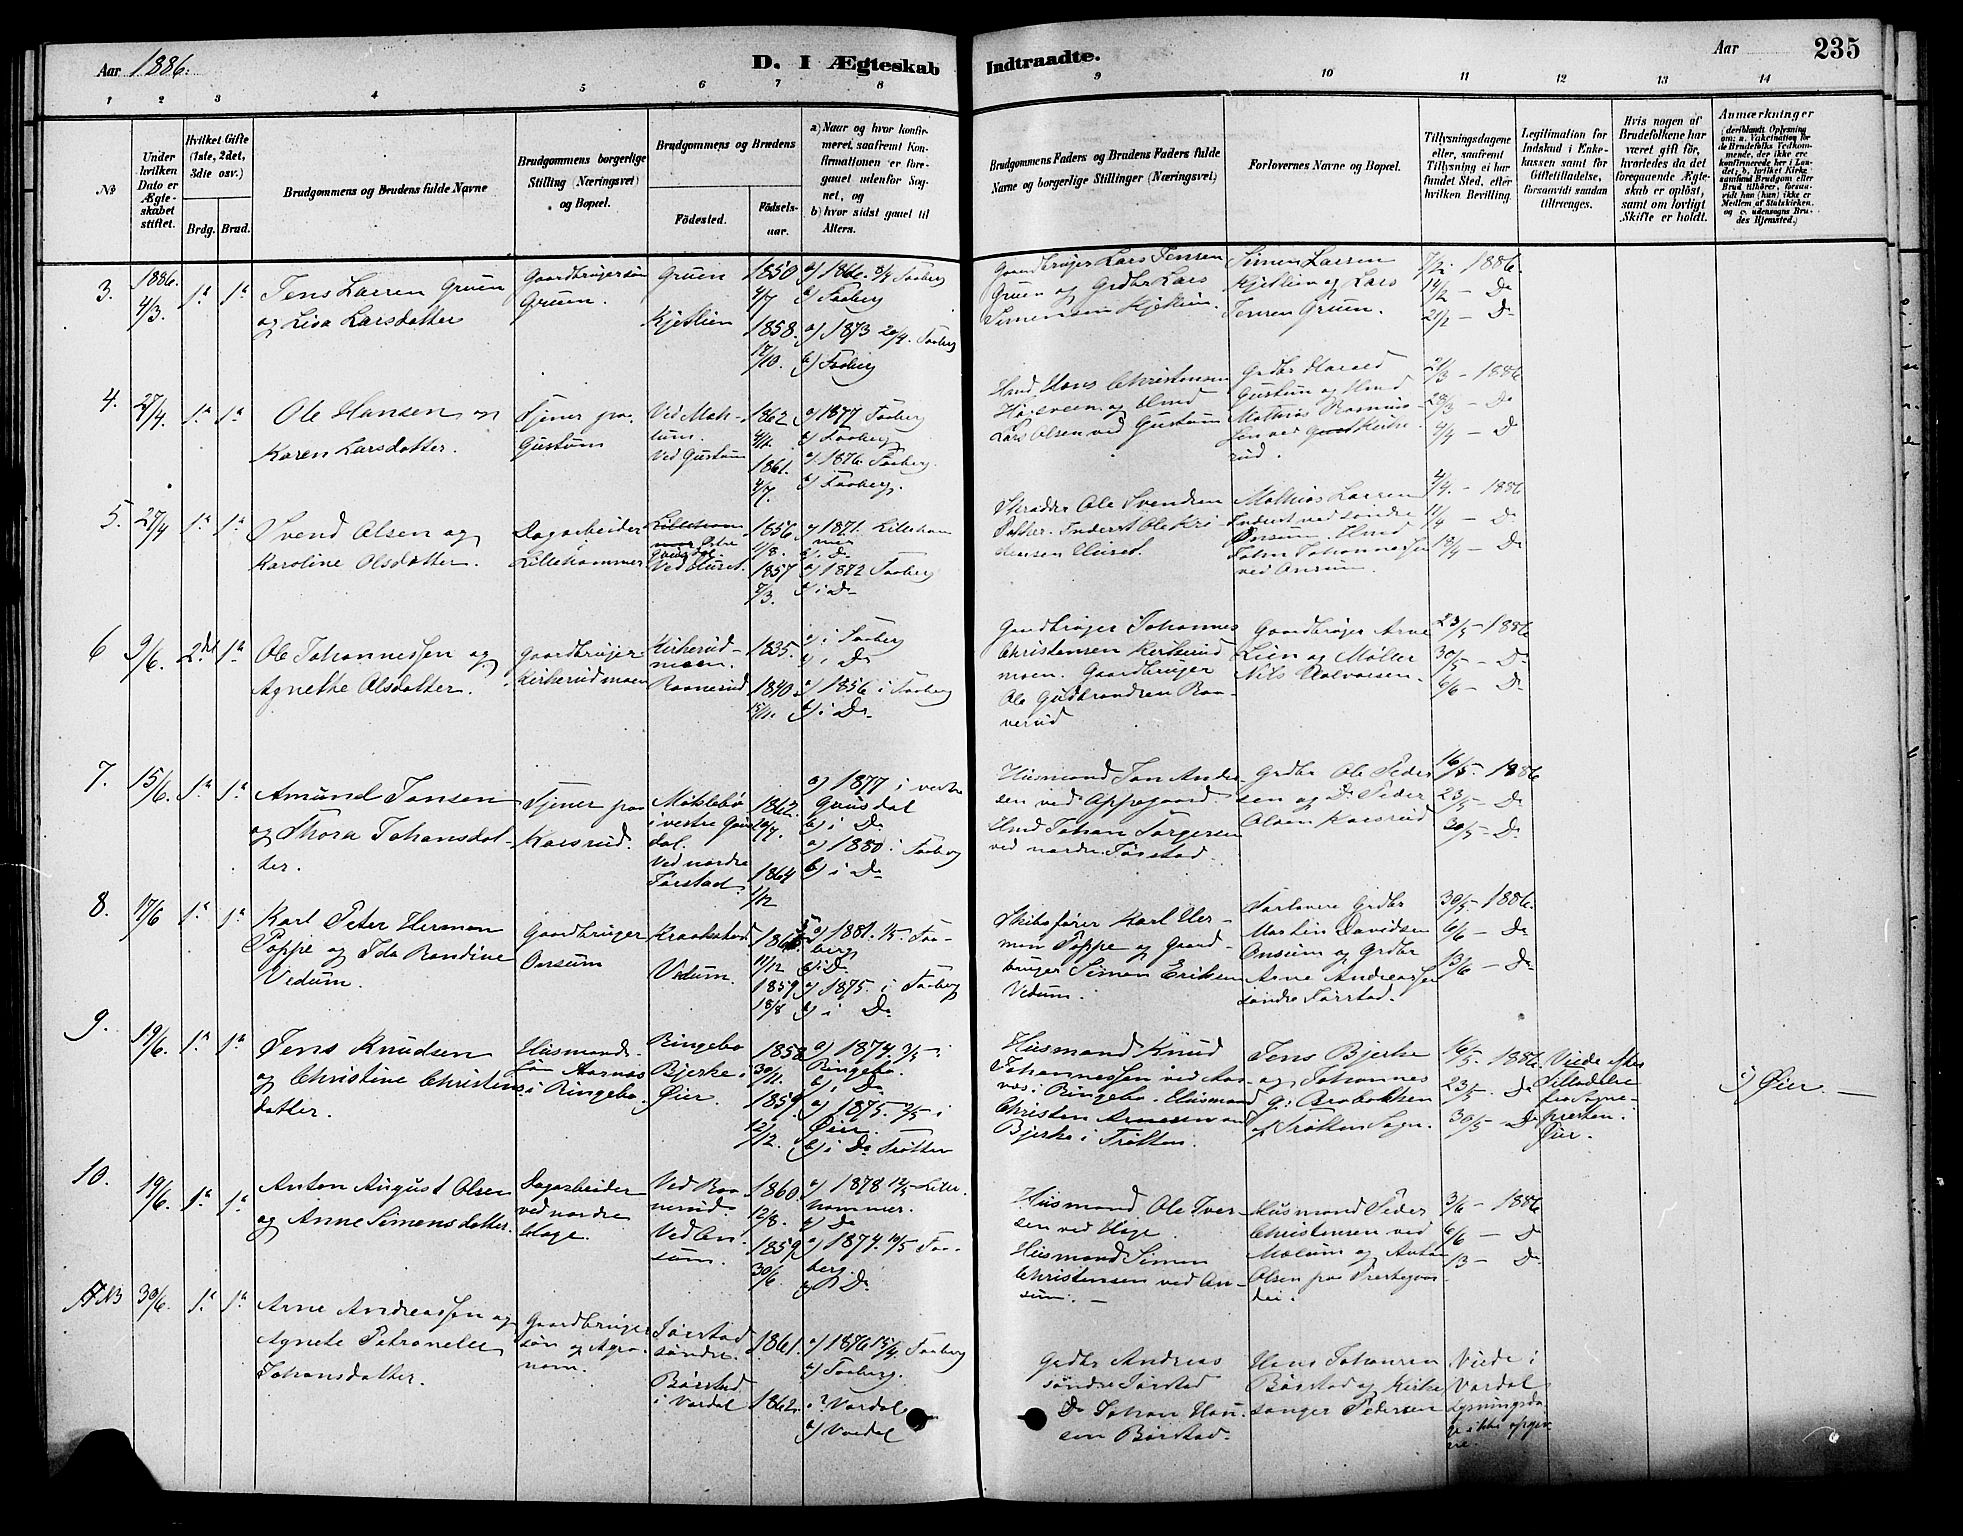 Aar 1886.
D. I Ægteskab
Indtraadte.
Aar
235
1 2 3 4 5 6 7 8
9 10 11 12 13 14
No
Under hvilken Dato er Ægteskabet stiftet.
Hvilket Gifte (1ste, 2det, 3die osv.)
Brdg. Brud.
Brudgommens og Brudens fulde Navne
Brudgommens borgerlige Stilling (Næringsvei) og Bopæl.
Brudgommens og Brudens
Födested.
Födsels-aar.
a) Naar og hvor konfirmeret, saafremt Konfirmationen er foregaaet udenfor Sognet, og
b) hvor sidst gaaet til Alters.
Brudgommens Faders og Brudens Faders fulde Navne og borgerlige Stillinger (Næringsvei)
Forlovernes Navne og Bopæl.
Tillysningsdagene eller, saafremt Tillysning ei har fundet Sted, efter hvilken Bevilling.
Legitimation for Indskud i Enkekassen samt for Giftetilladelse, forsaavidt saadan tiltrænges.
Hvis nogen af Brudefolkene har været gift för, hvorledes da det foregaaende Ægteskab er oplöst, samt om lovligt Skifte er holdt.
Anmærkninger
(deriblandt Oplysning om: a. Vakcination for de Brudefolks Vedkommende, der ikke ere konfirmerede her i Landet; b. hvilket Kirkesamfund Brudgom eller Brud tilhörer, forsaavidt han (hun) ikke er Medlem af Statskirken, og c. udensogns Brudes Hjemsted.)
3. 1886. 4/3. 1a 1a
Jens Larsen Gruen
og Lisa Larsdatter
Gaardbrugersøn
Gruen.
Gruen
Kjetlien
1850
4/7
1858.
17/10.
b) Faaberg
a) 1873 20/4. Faaberg
b) Faaberg
Gaardbruger Lars Jensen
Gruen og Grdbr Lars
Simensen Kjetlien.
Simen Larsen
Kjetlien og Lars
Jensen Gruen.
7/2 - 1886.
14/2 - Do
21/2 - Do
4. 27/4 1a 1a
Ole Hansen og
Karen Larsdatter.
Tjener paa
Gustum
Ved Gustum
1862
1861.
4/7.
a) 1877 Faaberg
b) Faaberg
a) 1876 Faaberg.
b) Faaberg.
Hmd Hans Christensen
Lars Olsen ved Gustum
Gustum og Hmd
Mathias Rasmus-
sen ved Kirke-
rud.
21/3 - 1886
28/3 - Do
4/4 - D
5. 27/4 1a 1a
Svend Olsen og
Karoline Olsdatter.
Dagarbeider
Lillehammer
Lilleham-
mer Østre
Gausdal
Ved Huset.
1856
11/8.
1857
7/3.
a) 1871. Lilleham
mer
b) i Do
a) 1872 Faaberg
b) i Do
Skrædder Ole Svendsen
Inderst Ole Kri
stensen Huset.
Mathias Larsen
Inderst ved søndre
Onsum. Hmd
John Johannessen
ved Onsum.
4/4. - 1886
11/4 - Do
18/4 - Do
6 9/6. 2det 1a
Ole Johannessen og
Agnethe Olsdatter.
Gaardbruger
Kirkerudmoen
Kirkerud-
moen.
Roverud
1835.
1840
15/11.
a) i Faaberg
b) i Do
a) 1856 i Faaberg
b) i Do
Gaardbruger Johannes
Christensen Kirkerud
moen. Gaardbruger
Ole Gudbrandsen Ro-
verud
Gaardbruger Arne
Lien og Møller
Nils Halvorsen.
23/5 - 1886
30/5 - Do
6/6 - Do
7. 15/6. 1a 1a
Amund Jonsen
og Thora Johansdat-
ter.
Tjener paa
Korsrud.
Møklebø
i vestre Gaus
dal.
Ved nordre
Førstad.
1862.
10/7.
1864
1/12
a) 1877 i vestre
Gausdal
b) i Do
a) 1880 i Faaberg
b) i Do
Husmand Jon Ander-
sen ved Oppegaard.
Hmd Johan Torgersen
ved nordre Førstad.
Grdbr Ole Peder
sen og Do Peder
Olsen Korsrud
16/5. 1886
23/5 - Do
30/5 - Do
8. 17/6 1a 1a
Karl Peter Herman
Poppe og Ida Randine
Vedum.
Gaardbruger
Onsum
Vedum.
11/12
1859
18/8
a) 1881. 1/5. Faa-
berg
b) i D
a) 1875. i Faaberg
b) i Do
Skibsfører Karl Her-
man Poppe og Gaard-
bruger Simen Eriksen
Vedum.
Forlovere Grdbr
Martin Davidsen
Onsum og Grdbr
Arne Andreassen
søndre Førstad.
30/5 - 1886.
6/6 - Do
13/6 - Do
9. 19/6. 1a 1a
Jens Knudsen
og Christine Christens
datter.
Husmands-
søn Aarnæs
i Ringebo.
Ringebo
Bjerke i
Øier.
1858
30/11.
1859.
12/12.
a) 1874. 3/5 i
Ringebo.
b) i Do
a) 1875. 2/5 i
Øier.
b) i Do Trøtten
Husmand Knud
Johannessen ved Aar-
næs i Ringebo. Husmand
Christen Arnesen ved
Bjerke i Trøtten.
Jens Bjerke
og Johannes
G: Brabakken
af Trøtten Sogn.
16/5. 1886
23/5 - Do
30/5 - Do
Viede efter
Tilladelse
fra Sogne-
præsten i
Øier.
c) Øier.
10. 19/6. 1a 1a
Anton August Olsen
og Anne Simensdatter.
Dagarbeider
ved nordre
Hage.
Ved Ro-
nerud.
Ved On-
sum.
1860
12/8.
1859
30/6.
a) 1878 12/5 Lille-
hammer.
b) Do
a) 1874. 10/5 Faa-
berg.
b) Do
Husmand Ole Iver-
sen ved Hage.
Husmand Simen
Christensen ved On-
sum.
Husmand Peder
Christensen ved
Molum og Anton
Olsen paa Præstegaar-
dei.
3/6 - 1886
6/6 - Do
13 - Do
NB 30/6. 1a 1a
Arne Andreassen og
Agnete Petronelle
Johansdatter.
Gaardbruger
søn og Agro-
nom.
Førstad
søndre.
Børstad
i Vardal
1861.
1862.
a) 1876 15/4 Faaberg
b) Faaberg.
i Vardal
b) Vardal
Grdbr Andreas
søndre Førstad
Do Johan Han-
sen Børstad.
Hans Johansen
Børstad og Kirke
sanger Pedersen
Viede i
Vardal
Lysningsda
ge ikke opgiv-
ne.